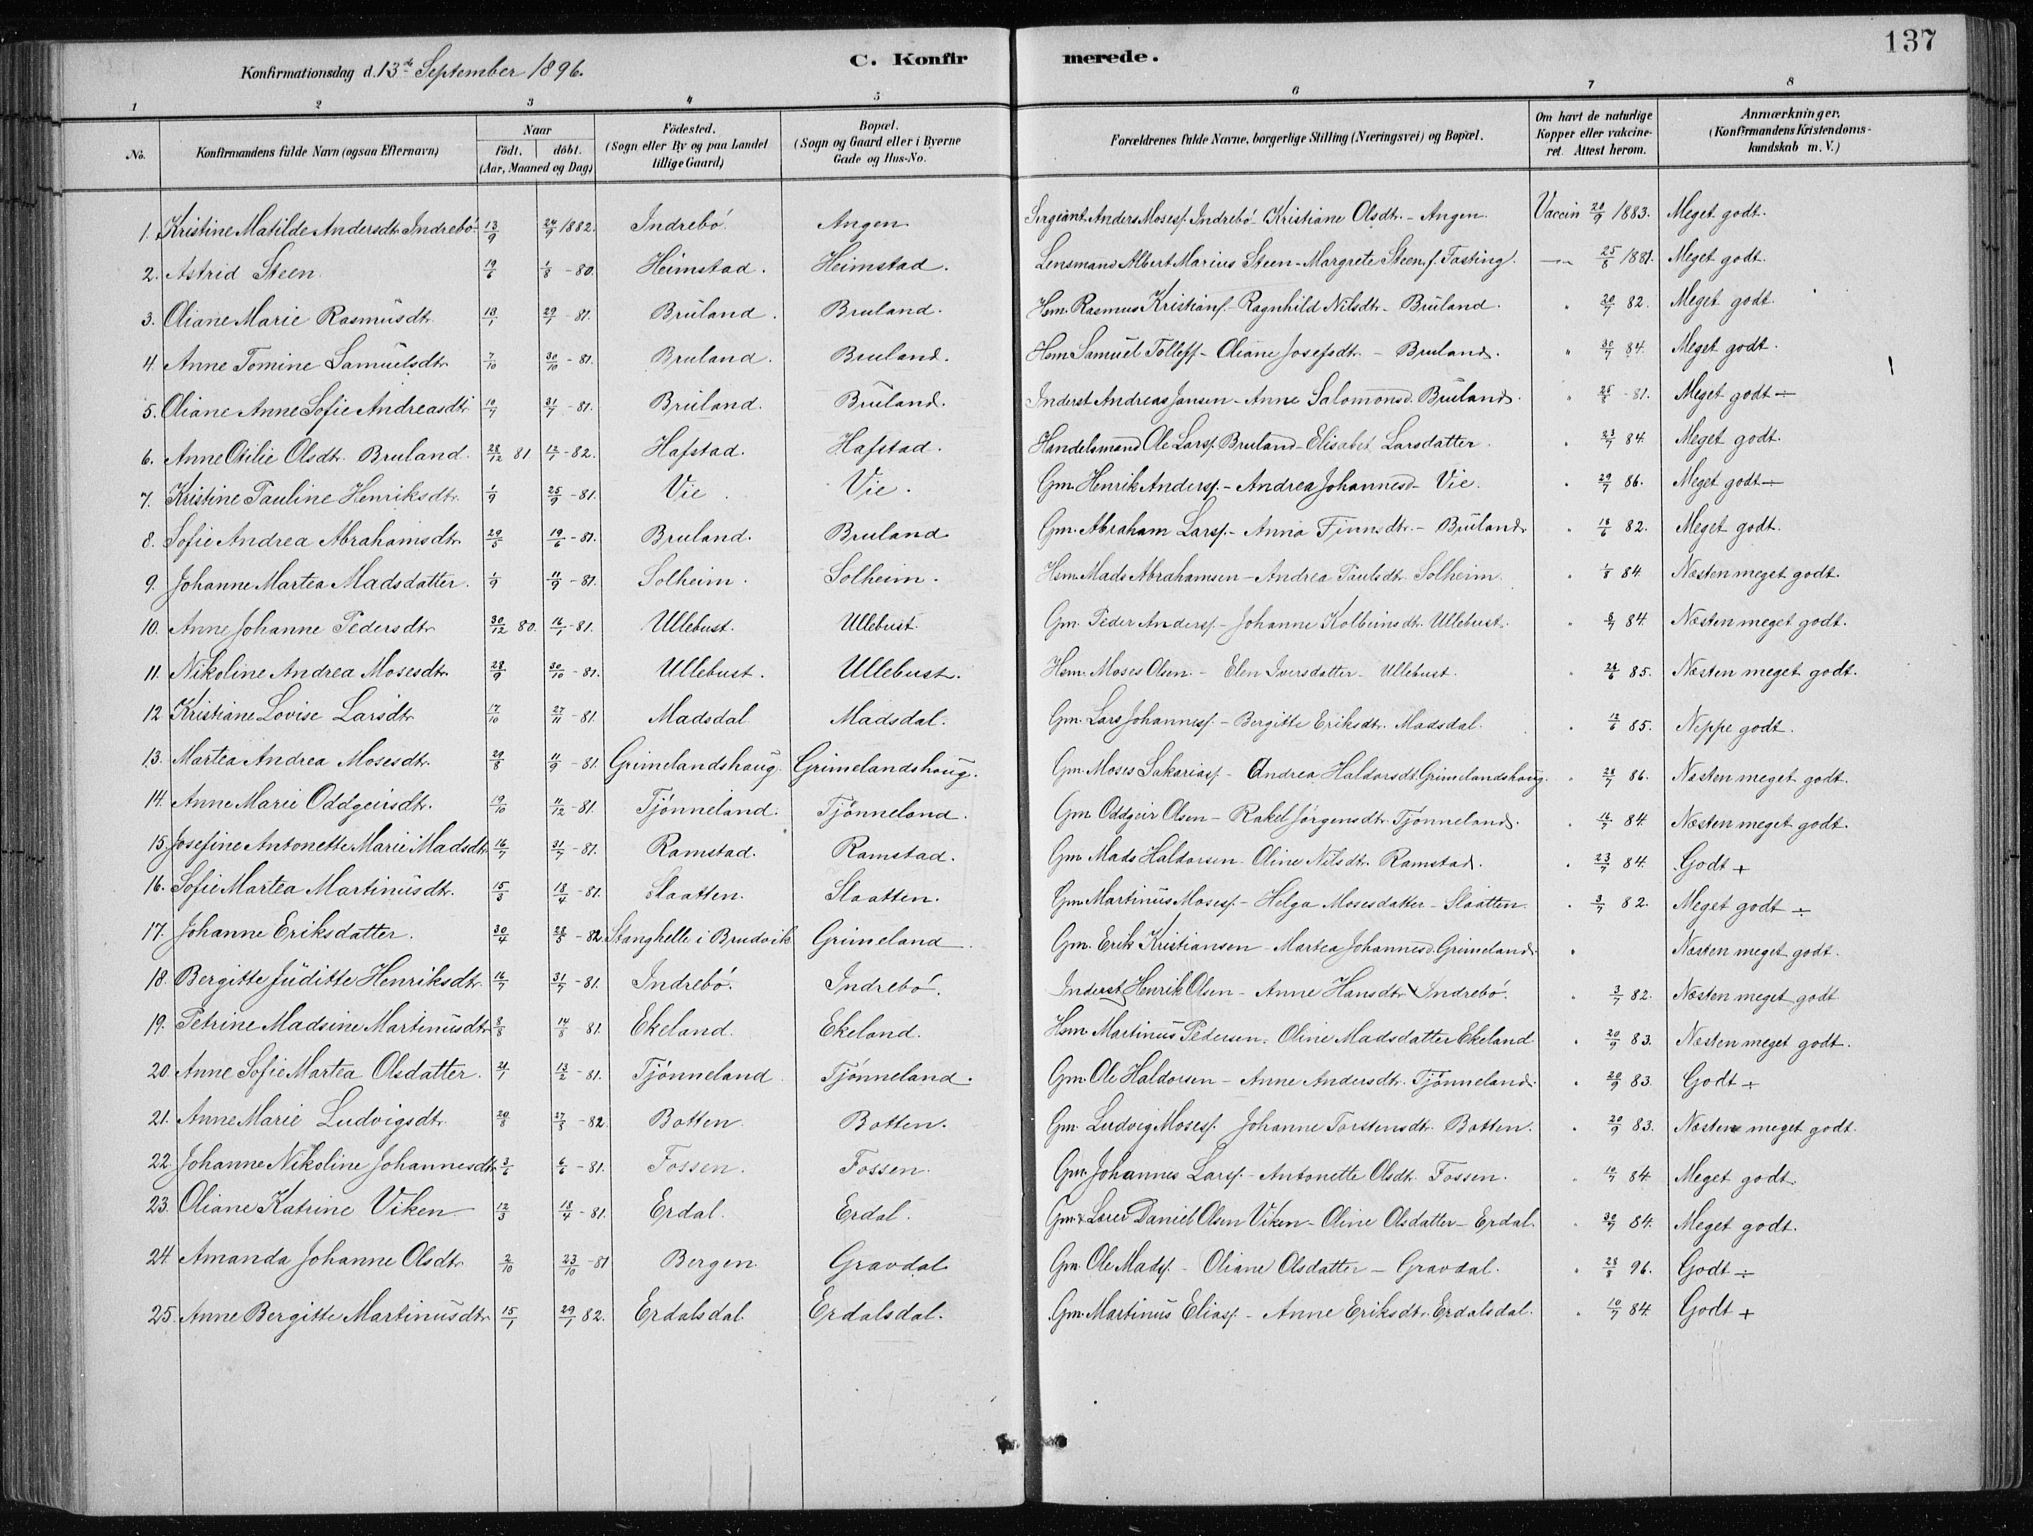 137
Konfirmationsdag d. 13de September 1896. C. Konfirmerede.
1 2 3 4 5 6 7 8
No. Konfirmandens fulde Navn (ogsaa Efternavn) Naar födt. döbt. (Aar, Maaned og Dag) Födested. (Sogn eller By og paa Landet tillige Gaard) Bopæl. (Sogn og Gaard eller i Byerne Gade og Hus-No. Forældrenes fulde Navne, borgerlige Stilling (Næringsvei) og Bopæl. Om havt de naturlige Kopper eller vakcineret. Attest herom. Anmærkninger. (Konfirmandens Kristendomskundskab m. V.)
1. Kristine Matilde Andersdtr Indrebö 13/9 24/9 1882. Indrebö Angen Sergeant Anders Mosesf. Indrebö Kristiane Olsdtr. - Angen Vaccin 20/9 1883. Meget godt.
2. Astrid Steen 19/6 1/8 - 80. Heimstad. Heimstad. Lensmand Albert Marius Steen - Margrete Steen f. Fasting. 25/8 1881. Meget godt.
3. Oliane Marie Rasmusdtr 18/1 29/1 - 81. Bruland. Bruland. Hsm. Rasmus Kristianf. - Ragnhild Nilsdtr. - Bruland. " 20/7 82. Meget godt.
4. Anne Tomine Samuelsdtr. 7/10 30/10 - 81. Bruland. Bruland. Hsm Samuel Tolleff. - Oliane Josefsdtr. - Bruland. " 30/7 84. Meget godt.
5. Oliane Anne Sofie Andreasdtr 10/7 31/7 - 81. Bruland. Bruland. Inderst Andreas Jansen - Anne Salomonsd. Bruland. " 25/8 - 81. Meget godt ÷
6. Anne Otilie Olsdtr. Bruland. 28/12 81 12/1 - 82. Hafstad. Hafstad. Handelsmand Ole Larsf. Bruland - Elisabet Larsdatter. " 23/7 84. Meget godt.
7. Kristine Pauline Henriksdtr. 1/9 25/9 - 81. Vie. Vie. Gm. Henrik Andersf. - Andrea Johannesd. - Vie. " 29/7 86. Meget godt ÷
8. Sofie Andrea Abrahamsdtr. 29/5 19/6 - 81. Bruland. Bruland Gm. Abraham Larsf. - Anna Finnsdtr. - Bruland " 18/6 82. Meget godt.
9. Johanne Martea Madsdatter. 1/9 11/9 - 81. Solheim. Solheim. Hsm. Mads Abrahamsen - Andrea Paulsdtr. Solheim. " 1/8 84. Næsten meget godt.
10. Anne Johanne Pedersdtr 30/12 80. 16/1 - 81. Ullebust. Ullebust. Gm. Peder Andersf. - Johanne Kolbeinsdtr. Ullebust. " 84. Næsten meget godt.
11. Nikoline Andrea Mosesdtr. 28/9 30/10 - 81. Ullebust. Ullebust. Hsm. Moses Olsen. - Elen Iversdatter - Ullebust. " 85. Næsten meget godt.
12 Kristiane Lovise Larsdtr. 17/10 27/11 - 81. Madsdal Madsdal. Gm. Lars Johannesf. - Bergitte Eriksdtr. Madsdal. " 85. Neppe godt.
13. Martea Andrea Mosesdtr. 29/8 11/9 - 81. Grimelandshaug. Grimelandshaug. Gm. Moses Sakariasf. - Andrea Haldorsdtr. Grimelandshaug. " 86. Næsten meget godt.
14. Anne Marie Oddgeirsdtr. 19/10 11/12 - 81. Tjönneland. Tjönneland. Gm. Oddgeir Olsen - Rakel Jörgensdtr. Tjönneland. " 16/7 84. Næsten meget godt.
15. Josefine Antonette Marie Madsdtr. 16/7 31/7 - 81. Ramstad. Ramstad. Gm. Mads Haldorsen - Oline Nilsdtr. Ramstad. " 23/7 84. Godt +
16. Sofie Martea Martinusdtr. 15/3 18/4 - 81. Slaatten. Slaatten. Gm. Martinus Mosesf. - Helga Mosesdatter - Slaatten. " 3/7 82. Meget godt ÷
17. Johanne Eriksdatter. 30/4 28/5 - 82 Stanghelle i Brudvik Grimeland. Gm. Erik Kristiansen - Martea Johannesd. Grimeland. " Næsten meget godt.
18. Bergitte Juditte Henriksdtr. 16/7 31/7 - 81. Indrebö. Indrebö. Inderst Henrik Olsen - Anne Hansdtr. Indrebö. " 3/7 82. Næsten meget godt
19. Petrine Madsine Martinusdtr 8/8 14/8 81. Ekeland. Ekeland. Hsm. Martinus Pedersen. Oline Madsdatter Ekeland " 20/9 83. Næsten meget godt.
20. Anne Sofie Martea Olsdatter. 21/1 13/2 - 81. Tjönneland Tjönneland. Gm. Ole Haldorsen - Anne Andersdtr. Tjönneland. " 20/9 83. Godt +
21. Anne Marie Ludvigsdtr. 20/8 27/8 - 82. Botten. Botten. Gm. Ludvig Mosesf. Johanne Torstensdtr. Botten. " 20/9 83. Næsten meget godt.
22. Johanne Nikoline Johannesdtr. 3/6 6/6 - 81. Fossen. Fossen. Gm. Johannes Larsf. - Antonette Olsdtr. Fossen. " 10/7 84. Meget godt
23. Oliane Katrine Viken 12/3 18/4 - 81. Erdal. Erdal. Gm. & Lærer Daniel Olsen Viken - Oline Olsdatter - Erdal. " 30/7 84. Meget godt.
24 Amanda Johanne Olsdtr. 2/10 23/10 - 81 Bergen. Gravdal. Gm. Ole Madsf. - Oliane Olsdatter - Gravdal. " 28/8 96. Godt ÷
25. Anne Bergitte Martinusdtr. 15/1 29/1 82. Erdalsdal. Erdalsdal. Gm. Martinus Eliasf. - Anne Eriksdtr. Erdalsdal. " 10/7 84. Godt +